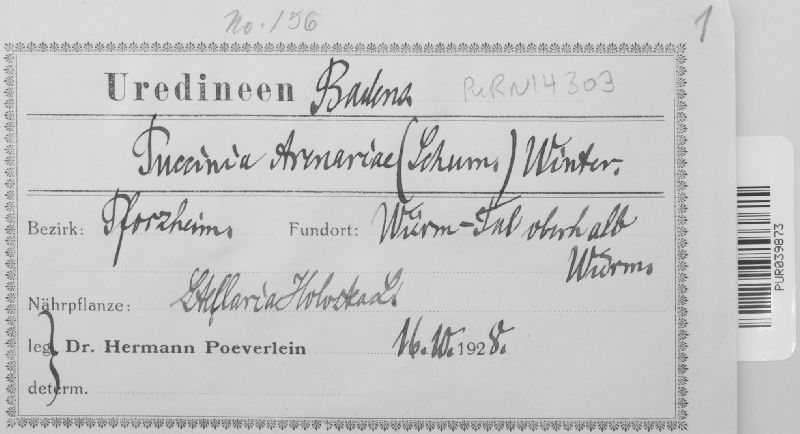 No. 156
1
Uredineen Badens
PURN14303
Puccinia Arenariae (Schum.) Winter.
Bezirk: Pforzheim. Fundort: Würm-Tal oberhalb
Würm.
Nährpflanze: Stellaria Holostea L.
leg. Dr. Hermann Poeverlein 16. IV. 1928.
determ.
PUR039873